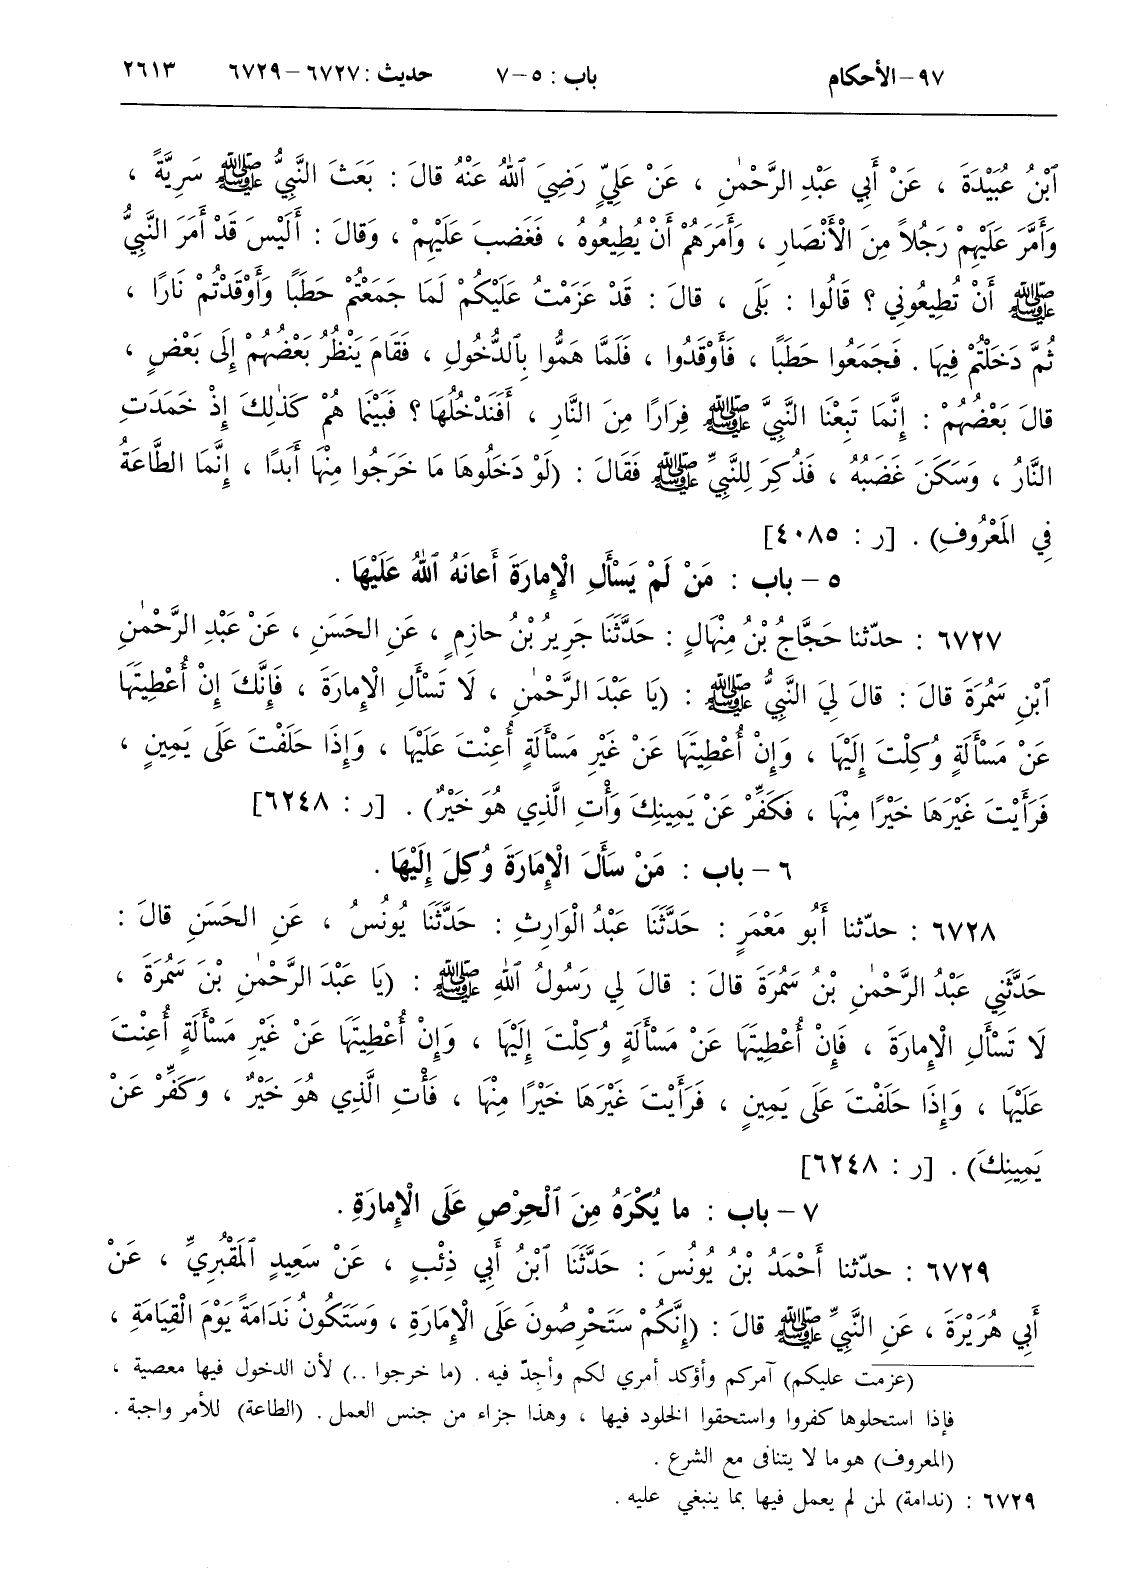 ٩٧-الأحكام باب : ٥-٧ حديث : ٦٧٢٧-٦٧٢٩ ٢٦١٣
ٱبْنُ عُبَيْدَةَ ، عَنْ أَبِي عَبْدِ الرَّحْمٰنِ ، عَنْ عَلِيٍّ رَضِيَ ٱللهُ عَنْهُ قالَ : بَعَثَ النَّبِيُّ ﷺ سَرِيَّةً ،
وَأَمَّرَ عَلَيْهِمْ رَجُلاً مِنَ الْأَنْصَارِ ، وَأَمَرَهُمْ أَنْ يُطِيعُوهُ ، فَغَضِبَ عَلَيْهِمْ ، وَقالَ : أَلَيْسَ قَدْ أَمَرَ النَّبِيُّ
ﷺ أَنْ تُطِيعُونِي ؟ قَالُوا : بَلَى ، قالَ : قَدْ عَزَمْتُ عَلَيْكُمْ لَمَا جَمَعْتُمْ حَطَبًا وَأَوْقَدْتُمْ نَارًا ،
ثُمَّ دَخَلْتُمْ فِيهَا . فَجَمَعُوا حَطَبًا ، فَأَوْقَدُوا ، فَلَمَّا هَمُّوا بِالدُّخُولِ ، فَقَامَ يَنْظُرُ بَعْضُهُمْ إِلَى بَعْضٍ ،
قالَ بَعْضُهُمْ : إِنَّمَا تَبِعْنَا النَّبِيَّ ﷺ فِرَارًا مِنَ النَّارِ ، أَفَنَدْخُلُهَا ؟ فَبَيْنَمَا هُمْ كَذٰلِكَ إِذْ خَمَدَتِ
النَّارُ ، وَسَكَنَ غَضَبُهُ ، فَذُكِرَ لِلنَّبِيِّ ﷺ فَقَالَ : (لَوْ دَخَلُوهَا مَا خَرَجُوا مِنْهَا أَبَدًا ، إِنَّمَا الطَّاعَةُ
فِي المَعْرُوفِ) . [ر : ٤٠٨٥]
٥ – باب : مَنْ لَمْ يَسْأَلِ الْإِمارَةَ أَعانَهُ ٱللهُ عَلَيْهَا .
٦٧٢٧ : حدّثنا حَجَّاجُ بْنُ مِنْهَالٍ : حَدَّثَنَا جَرِيرُ بْنُ حازِمٍ ، عَنِ الحَسَنِ ، عَنْ عَبْدِ الرَّحْمٰنِ
ٱبْنِ سَمُرَةَ قالَ : قالَ لِيَ النَّبِيُّ ﷺ : (يَا عَبْدَ الرَّحْمٰنِ ، لَا تَسْأَلِ الْإِمارَةَ ، فَإِنَّكَ إِنْ أُعْطِيتَهَا
عَنْ مَسْأَلَةٍ وُكِلْتَ إِلَيْهَا ، وَإِنْ أُعْطِيتَهَا عَنْ غَيْرِ مَسْأَلَةٍ أُعِنْتَ عَلَيْهَا ، وَإِذَا حَلَفْتَ عَلَى يَمِينٍ ،
فَرَأَيْتَ غَيْرَهَا خَيْرًا مِنْهَا ، فَكَفِّرْ عَنْ يَمِينِكَ وَأْتِ الَّذِي هُوَ خَيْرٌ) . [ر : ٦٢٤٨]
٦ – باب : مَنْ سَأَلَ الْإِمارَةَ وُكِلَ إِلَيْهَا .
٦٧٢٨ : حدّثنا أَبُو مَعْمَرٍ : حَدَّثَنَا عَبْدُ الْوَارِثِ : حَدَّثَنَا يُونُسُ ، عَنِ الحَسَنِ قالَ :
حَدَّثَنِي عَبْدُ الرَّحْمٰنِ بْنُ سَمُرَةَ قالَ : قالَ لِي رَسُولُ ٱللهِ ﷺ : (يَا عَبْدَ الرَّحْمٰنِ بْنَ سَمُرَةَ ،
لَا تَسْأَلِ الْإِمارَةَ ، فَإِنْ أُعْطِيتَهَا عَنْ مَسْأَلَةٍ وُكِلْتَ إِلَيْهَا ، وَإِنْ أُعْطِيتَهَا عَنْ غَيْرِ مَسْأَلَةٍ أُعِنْتَ
عَلَيْهَا ، وَإِذَا حَلَفْتَ عَلَى يَمِينٍ ، فَرَأَيْتَ غَيْرَهَا خَيْرًا مِنْهَا ، فَأْتِ الَّذِي هُوَ خَيْرٌ ، وَكَفِّرْ عَنْ
يَمِينِكَ) . [ر : ٦٢٤٨]
٧ – باب : ما يُكْرَهُ مِنَ ٱلْحِرْصِ عَلَى الْإِمارَةِ .
٦٧٢٩ : حدّثنا أَحْمَدُ بْنُ يُونُسَ : حَدَّثَنَا ٱبْنُ أَبِي ذِئْبٍ ، عَنْ سَعِيدٍ ٱلمَقْبُرِيِّ ، عَنْ
أَبِي هُرَيْرَةَ ، عَنِ النَّبِيِّ ﷺ قالَ : (إِنَّكُمْ سَتَحْرِصُونَ عَلَى الْإِمارَةِ ، وَسَتَكُونُ نَدَامَةً يَوْمَ الْقِيَامَةِ ،
(عزمت عليكم) آمركم وأؤكد أمري لكم وأجدّ فيه . (ما خرجوا ..) لأن الدخول فيها معصية ،
فإذا استحلوها كفروا واستحقوا الخلود فيها ، وهذا جزاء من جنس العمل . (الطاعة) للأمر واجبة .
(المعروف) هو ما لا يتنافى مع الشرع .
٦٧٢٩ : (ندامة) لمن لم يعمل فيها بما ينبغي عليه .